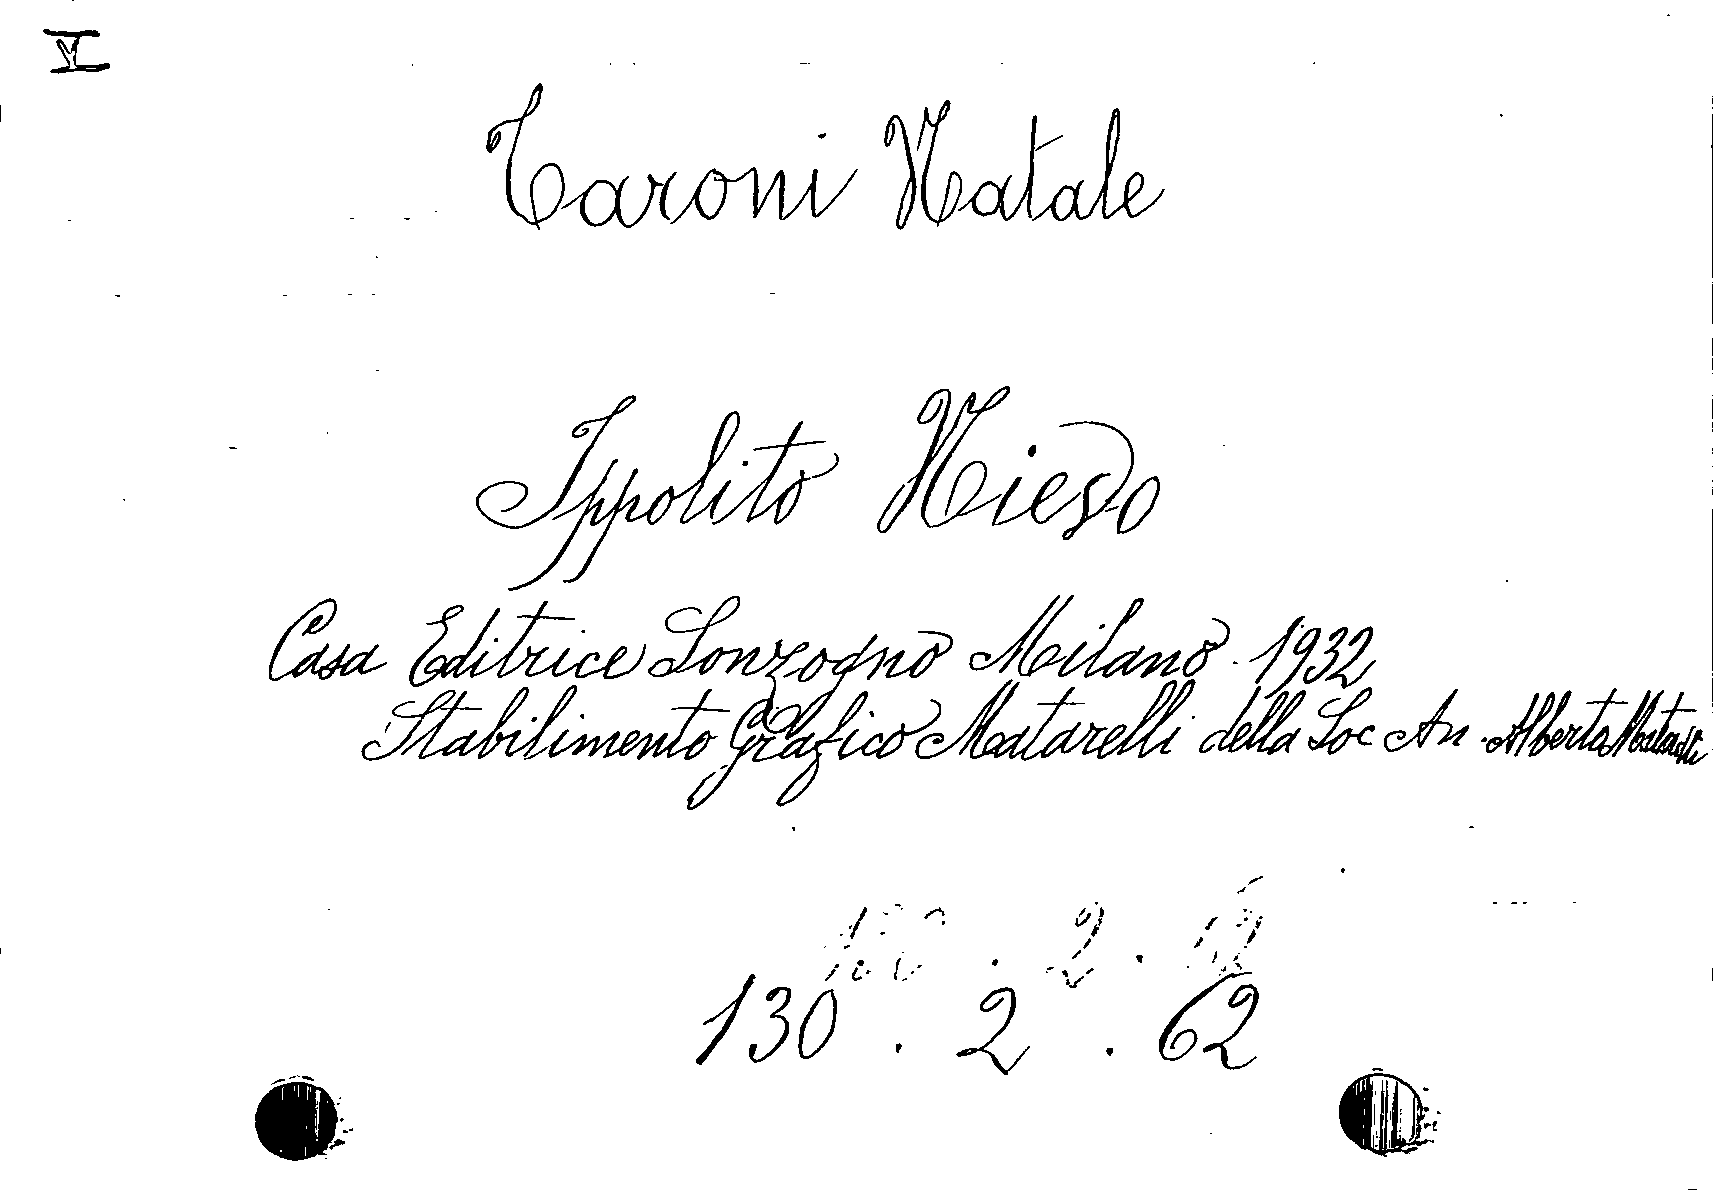 VI
Taroni Natale
Ippolito Nievo
Casa Editrice Sonzogno Milano. 1932
Stabilimento Grafico Matarelli della Soc An. Alberto Matarelli
130 . 2 . 62
130 . 2 . 62